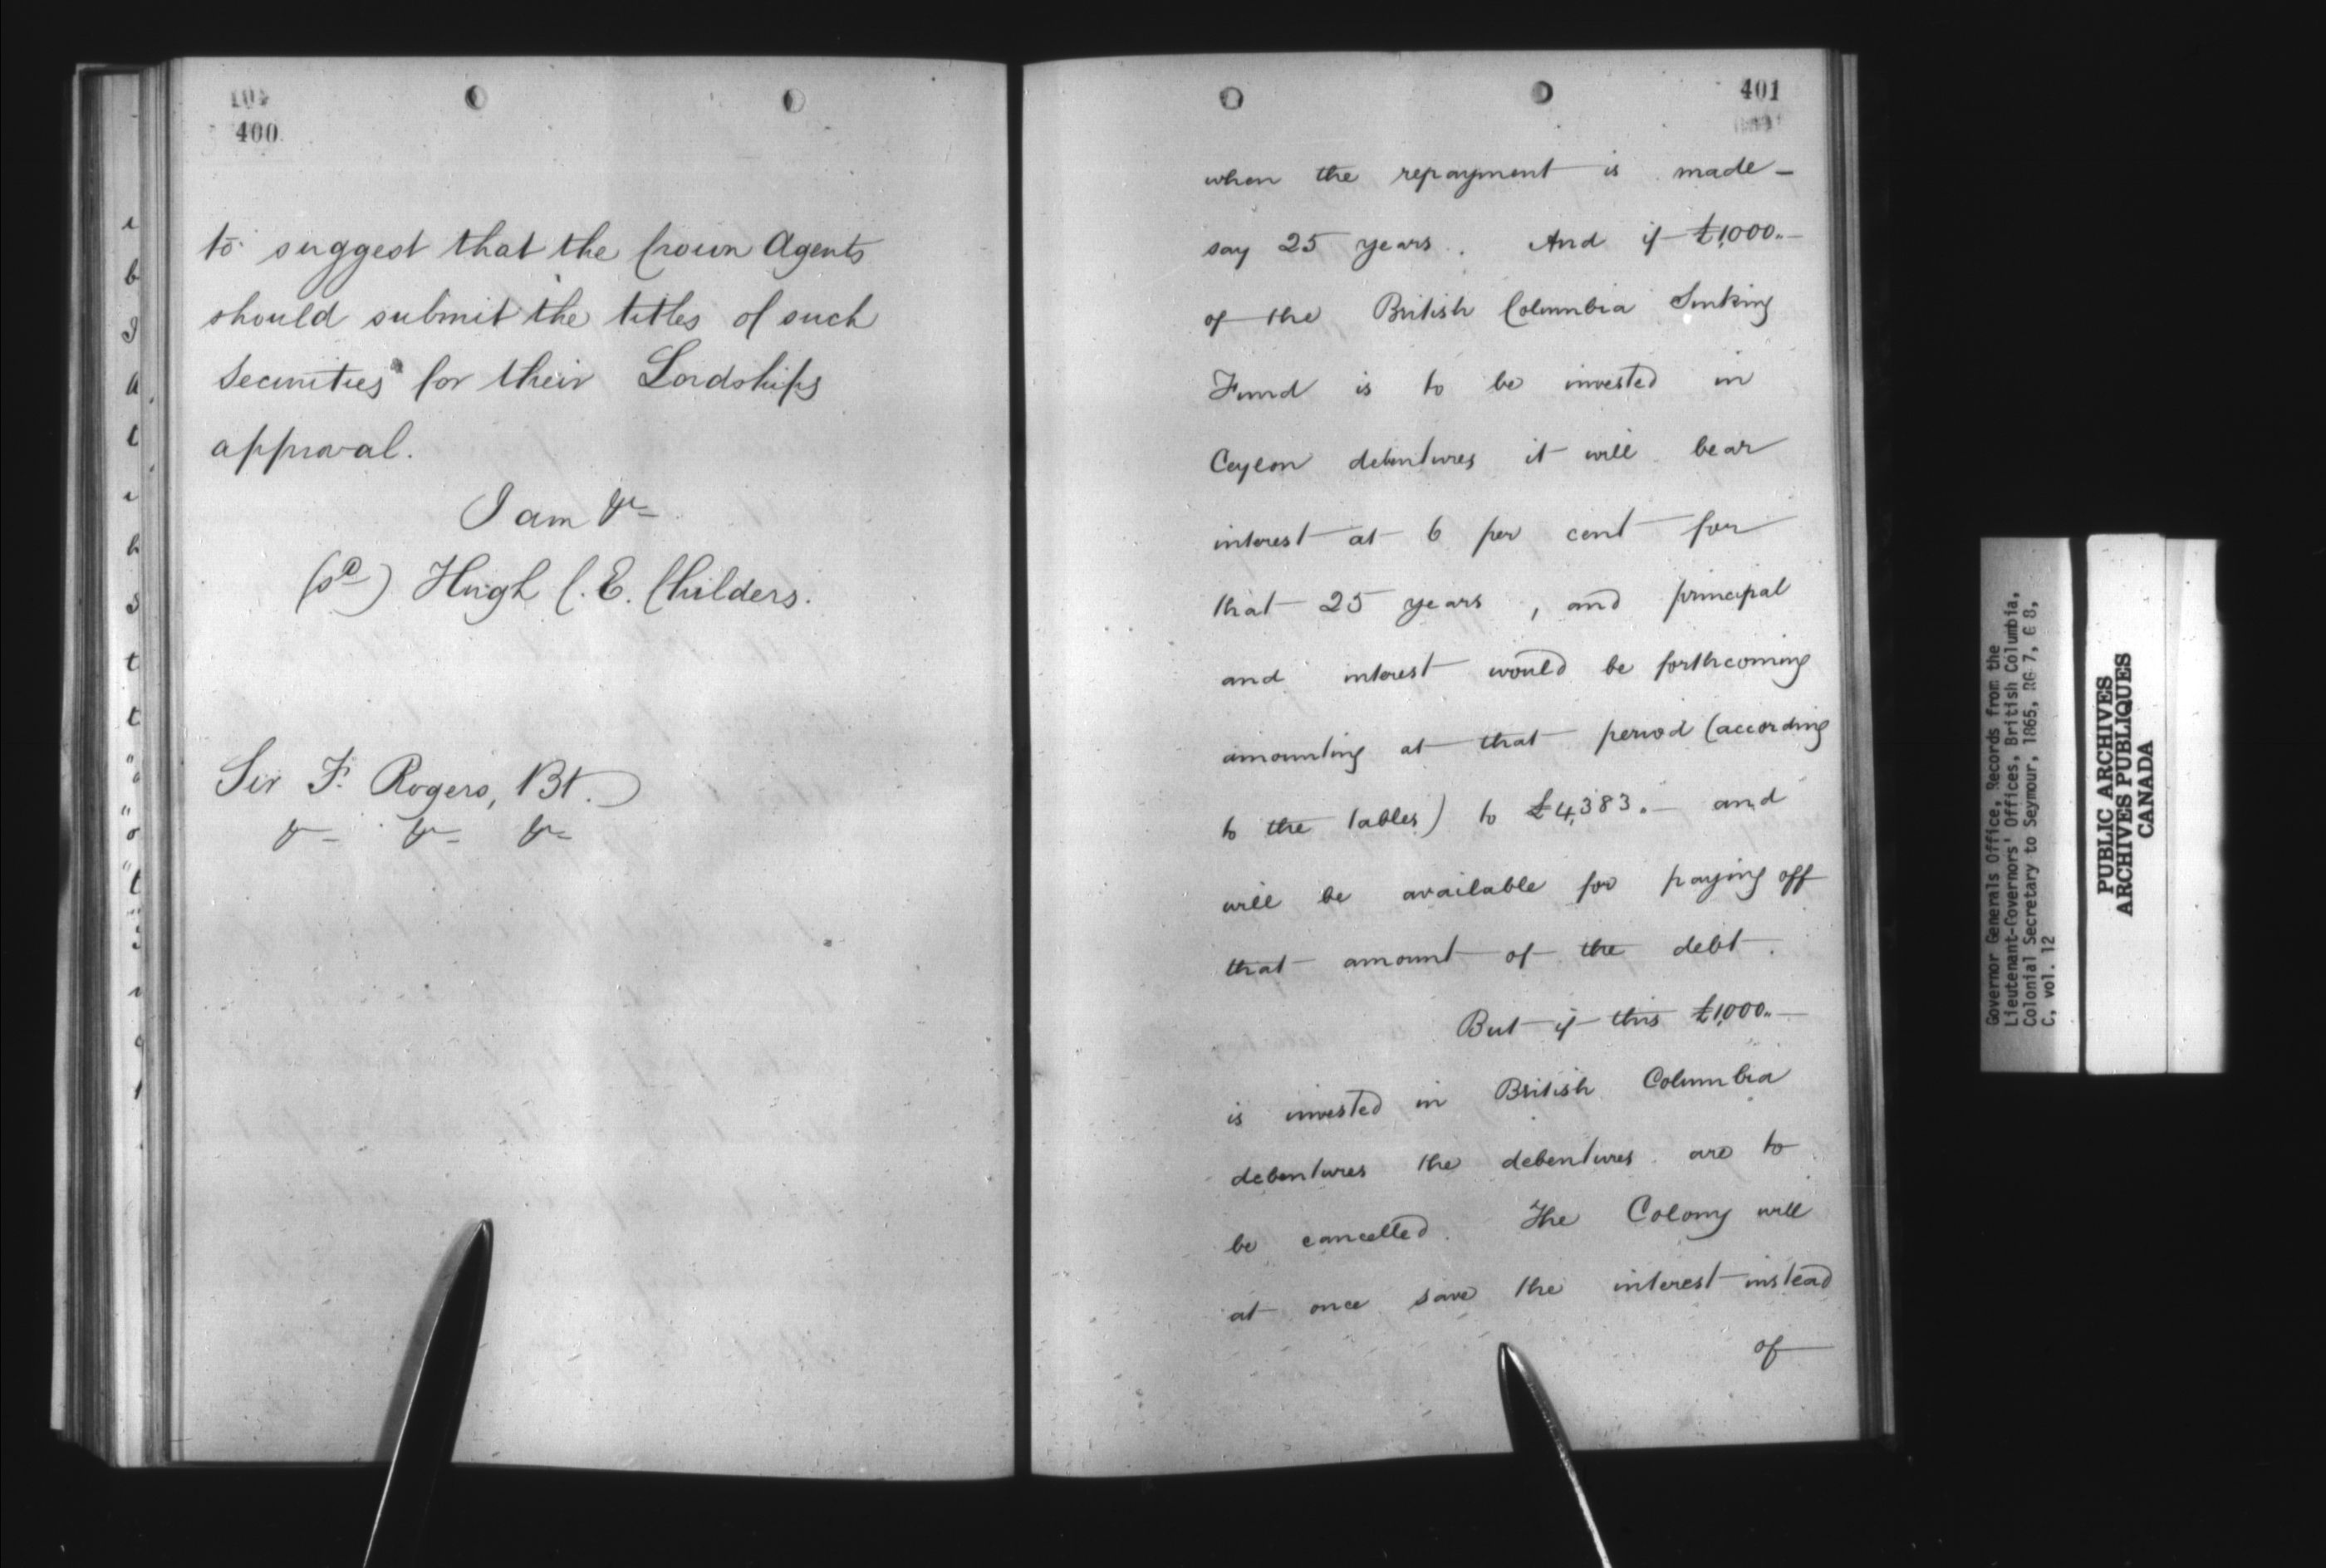 400
to suggest that the Crown Agents
should submit the titles of such
Securities for their Lordships
approval.
I am &c
(sd) Hugh C. E. Childers.
Sir F. Rogers, Bt.
&c &c &c
401
when the repayment is made -
say 25 years. And if £1,000.-
of the British Columbia Sinking
Fund is to be invested in
Ceylon debentures it will bear
interest at 6 per cent for
that 25 years, and principal
and interest would be forthcoming
amounting at that period (according
to the tables) to £4,383.- and
will be available for paying off
that amount of the debt.
But if this £1,000.-
is invested in British Columbia
debentures the debentures are to
be cancelled. The Colony will
at once save the interest instead
of
Governor Generals Office, Records from the
Lieutenant-Governors' Offices, British Columbia,
Colonial Secretary to Seymour, 1865, RG 7, G 8,
C, vol. 12
PUBLIC ARCHIVES
ARCHIVES PUBLIQUES
CANADA